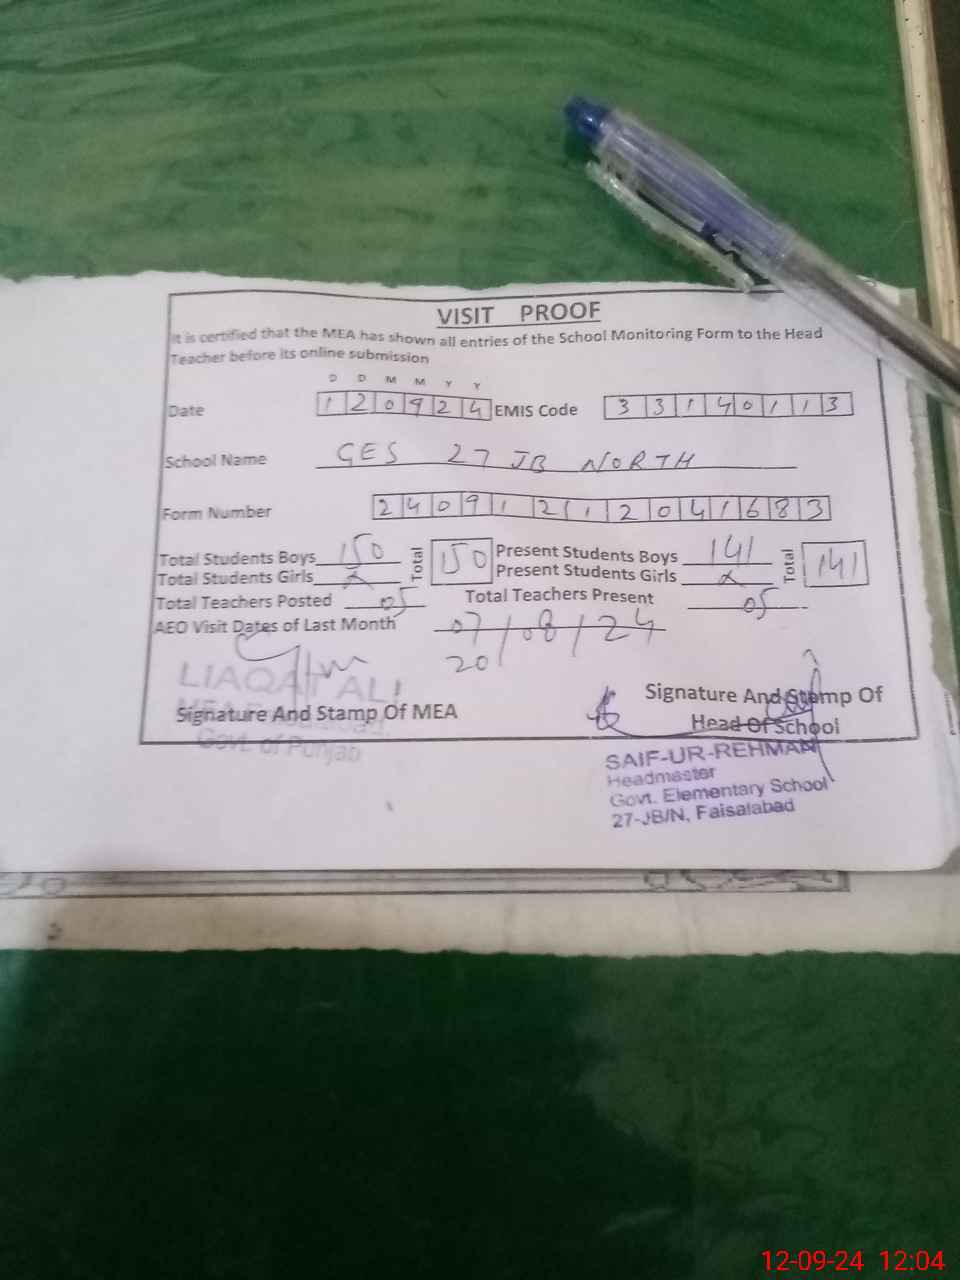 VISIT PROOF
It is certified that the MEA has shown all entries of the School Monitoring Form to the Head
Teacher before its online submission
D D M M Y Y
Date 1 2 0 9 2 4 EMIS Code 3 3 1 4 0 1 1 3
School Name GES 27 JB NORTH
Form Number 2 4 0 9 1 2 1 2 0 4 1 6 8 3
Total Students Boys 150 Total 150 Present Students Boys 141 Total 141
Total Students Girls x Present Students Girls x
Total Teachers Posted 05 Total Teachers Present 05
AEO Visit Dates of Last Month 07/08/24
20
LIAQAT ALI
Signature And Stamp Of MEA
Govt. of Punjab
Signature And Stamp Of
Head Of School
SAIF-UR-REHMAN
Headmaster
Govt. Elementary School
27-JB/N, Faisalabad
12-09-24 12:04